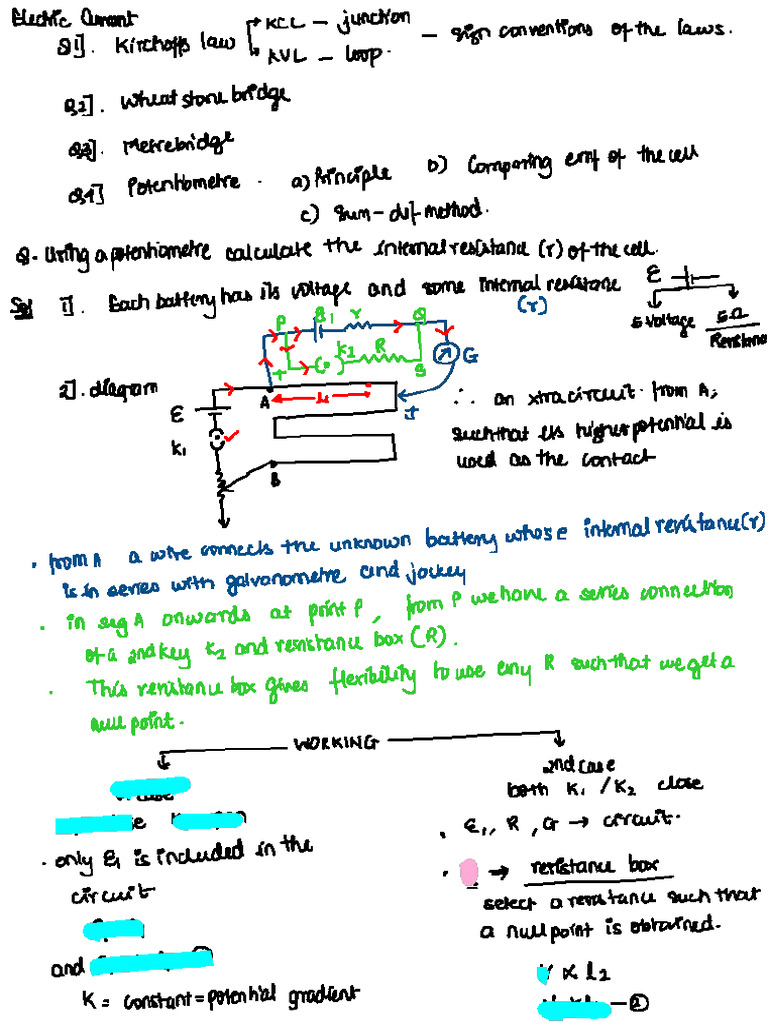 Electric Current
Q1]. Kirchoffs law KCL – junction – sign conventions of the laws.
KVL – loop.
Q2]. Wheatstone bridge
Q3]. Metrebridge
Q4] Potentiometre. a) Principle b) Comparing emf of the cell
c) Sum-dif-method.
Q- Using a potentiometre calculate the internal resistance (r) of the cell.
Sol 1]. Each battery has its voltage and some internal resistance (r)
ε
5 Voltage 5Ω
Resistance
P r Q
K2 R S G
2]. diagram
A J
ε
K1
B
∴ an xtra circuit from A,
such that its higher potential is
used as the contact
. from A a wire connects the unknown battery whose internal resistance (r)
is in series with galvanometre and jockey
. in seg A onwards at print P, from P we have a series connection
of a 2nd key K2 and resistance box (R).
. This resistance box gives flexibility to use any R such that we get a
null point.
WORKING
2nd case
both K1 / K2 close
. only E1 is included in the
circuit
and
K = constant = potential gradient
. E1, R, G → circuit.
. → resistance box
select a resistance such that
a null point is obtained.
∝ l2
– ②